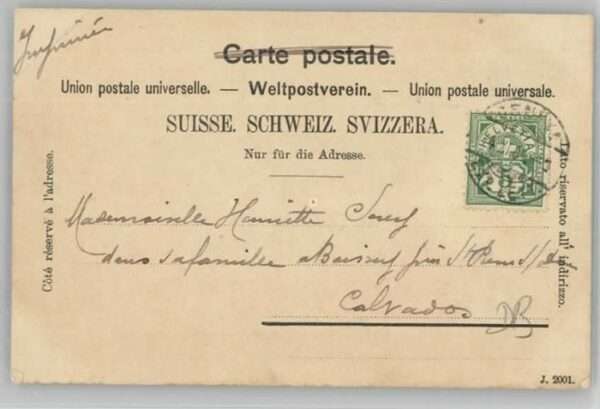 Imprimée
Carte postale.
Union postale universelle. — Weltpostverein. — Union postale universale.
SUISSE. SCHWEIZ. SVIZZERA.
Nur für die Adresse.
Côté réservé à l'adresse.
Lato riservato all' indirizzo.
HELVETIA
Mademoiselle Henriette
dans sa famille a près St
Calvados
DB
J. 2001.